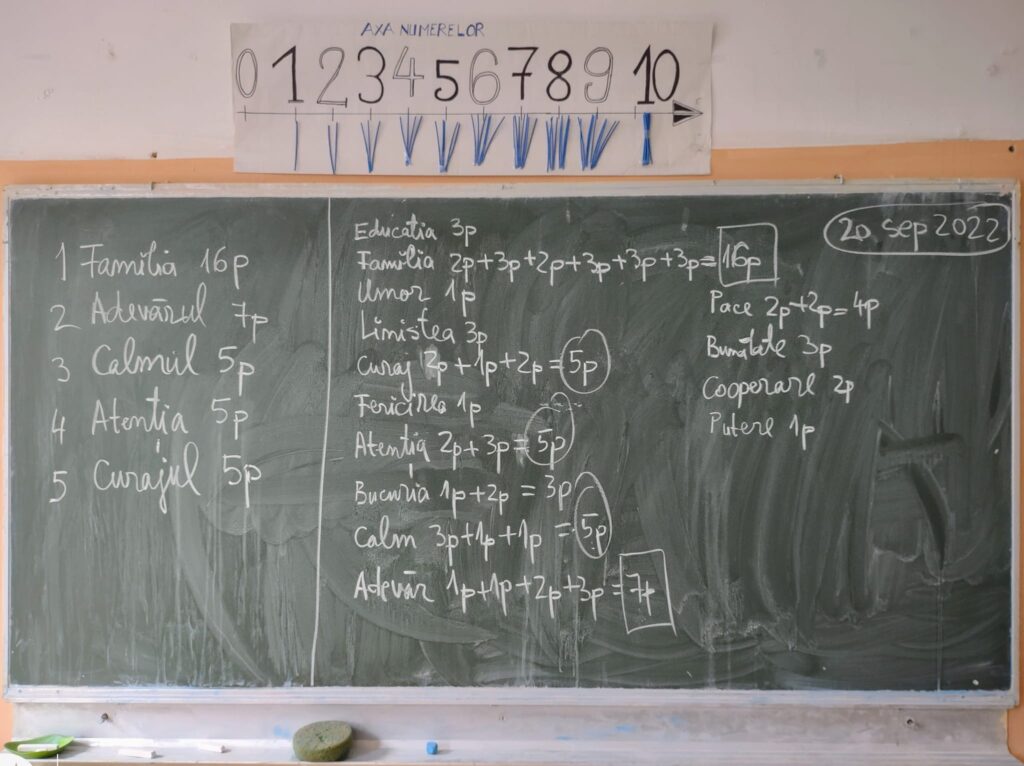 AXA NUMERELOR
0 1 2 3 4 5 6 7 8 9 10
1 Familia 16p
2 Adevărul 7p
3 Calmul 5p
4 Atenția 5p
5 Curajul 5p
Educatia 3p
Familia 2p+3p+2p+3p+3p+3p=16p
Umor 1p
Linistea 3p
Curaj 2p+1p+2p=5p
Fericirea 1p
Atenția 2p+3p=5p
Bucuria 1p+2p=3p
Calm 3p+1p+1p=5p
Adevăr 1p+1p+2p+3p=7p
20 sep 2022
Pace 2p+2p=4p
Bunătate 3p
Cooperare 2p
Putere 1p